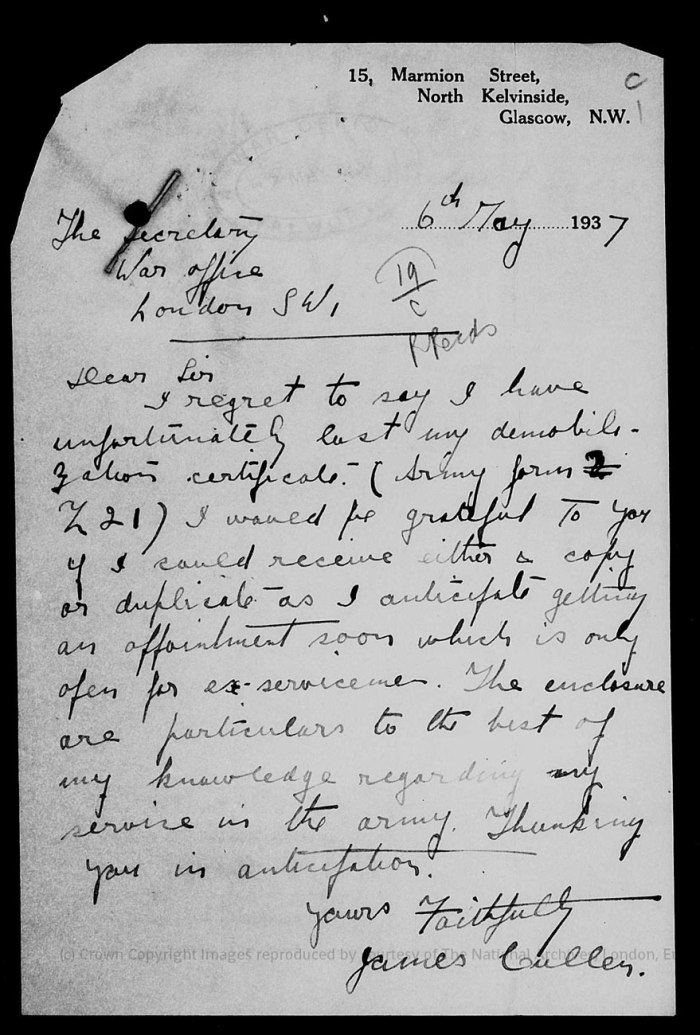 15, Marmion Street,
North Kelvinside,
Glasgow, N.W.
C
1
6th May 1937
The Secretary
War office
London SW1
19
C
Dear Sir
I regret to say I have
unfortunately lost my demobili-
zation certificate. (Army form
Z 21) I would be grateful to you
if I could receive either a copy
or duplicate as I anticipate getting
an appointment soon which is only
open for ex-servicemen. The enclosure
are particulars to the best of
my knowledge regarding my
service in the army. Thanking
you in anticipation.
Yours Faithfully
James Cullen.
(c) Crown Copyright Images reproduced by courtesy of The National Archives, London, En